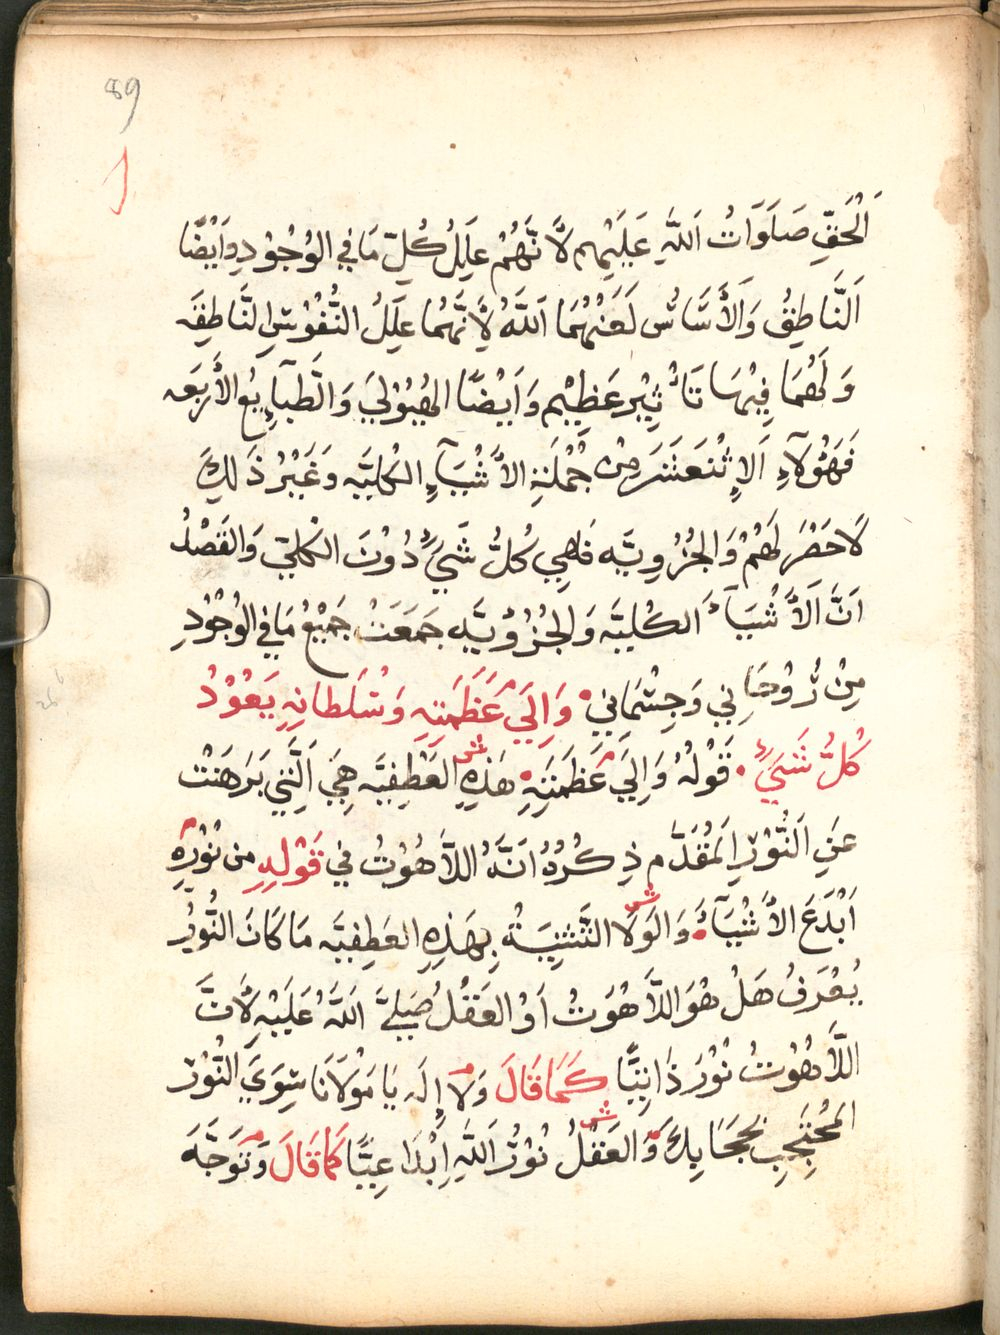 89
اَلْحَقِّ صَلَوَاتُ اَللَّهِ عَلَيْهِم لاَنَّهُمْ عِلَلُ كُلِّ مَا فِي الوُجُوْدِ وَاَيْضًا
اَلنَّاطِقُ وَالأَسَاسُ لَعَنْهُمَا اَللَّهُ لِأَنَّهُمَا عِلَلُ النُّفُوْسِ النَّاطِقَه
وَلَهُمَا فِيْهَا تَأْثِيْر عَظِيْم وَاَيْضًا الهُيُوْلَي وَالطَّبآيِعُ الأَرْبَعَه
فَهَؤُلآءِ اَلاِثْنَعَشَر مِنْ جُمْلَةِ الأَشْيَآءِ الكُلِيَّه وَغَيْرُ ذَلِكَ
لاَ حَصْرَ لَهُمْ وَالجُزْوِيَّه فَاهِي كُلُّ شَيْءٍ دُوْنَ الكُلِّي وَالقَصْدُ
اَنَّ اَلأَشْيَآءَ الكُلِيَّه وَالجُزْؤُيَّه جَمَعَتْ جَمِيْعُ مَا فِي الوُجُوْدِ
مِنْ رُوْحَانِي وَجِسْمَانِي وَاِلَي عَظَمَتِهِ وَسُلطَانِهِ يَعُوْدُ
كُلُّ شَيْءٍ قَوْلُهُ وَاِلَي عَظَمَتِهِ ش هَذِهِ العَطْفِيَّه هِيَ اَلَّتِي بَرهَنَتْ
عَنِ اَلنُّوْرِ اَلمُقَدَّم ذِكْرُهُ اَنَّهُ اللاَّهُوْتُ فِي قَوْلِهِ مِن نُوْرِهِ
اَبْدَعَ الأَشْيَآءَ ش وَالَوْلاَ التَّثْنِيَةُ بِهَذِهِ العَطِفيَّه مَا كَانَ النُّوْرُ
يُعْرَفُ هَلْ هُوَ اللاَّهُوَتُ اَوْ العَقْلُ صَلَيَّ اَللَّهُ عَلَيْهِ لأَنَّ
اللاَّهُوْتُ نُوْرَ ذَاتِيًّا كَمَا قَالَ وَلاَ اِلَه يَا مَوْلاَنَا سِوَيَ النُّوْرَ
المُحْتَجِبِ بحِجَابِكَ ش وَالعَقْلُ نُوْرُ اَللَّهِ اِبْدَاعِيًّا كَمَا قَالَ وَتَوَجَّهَ